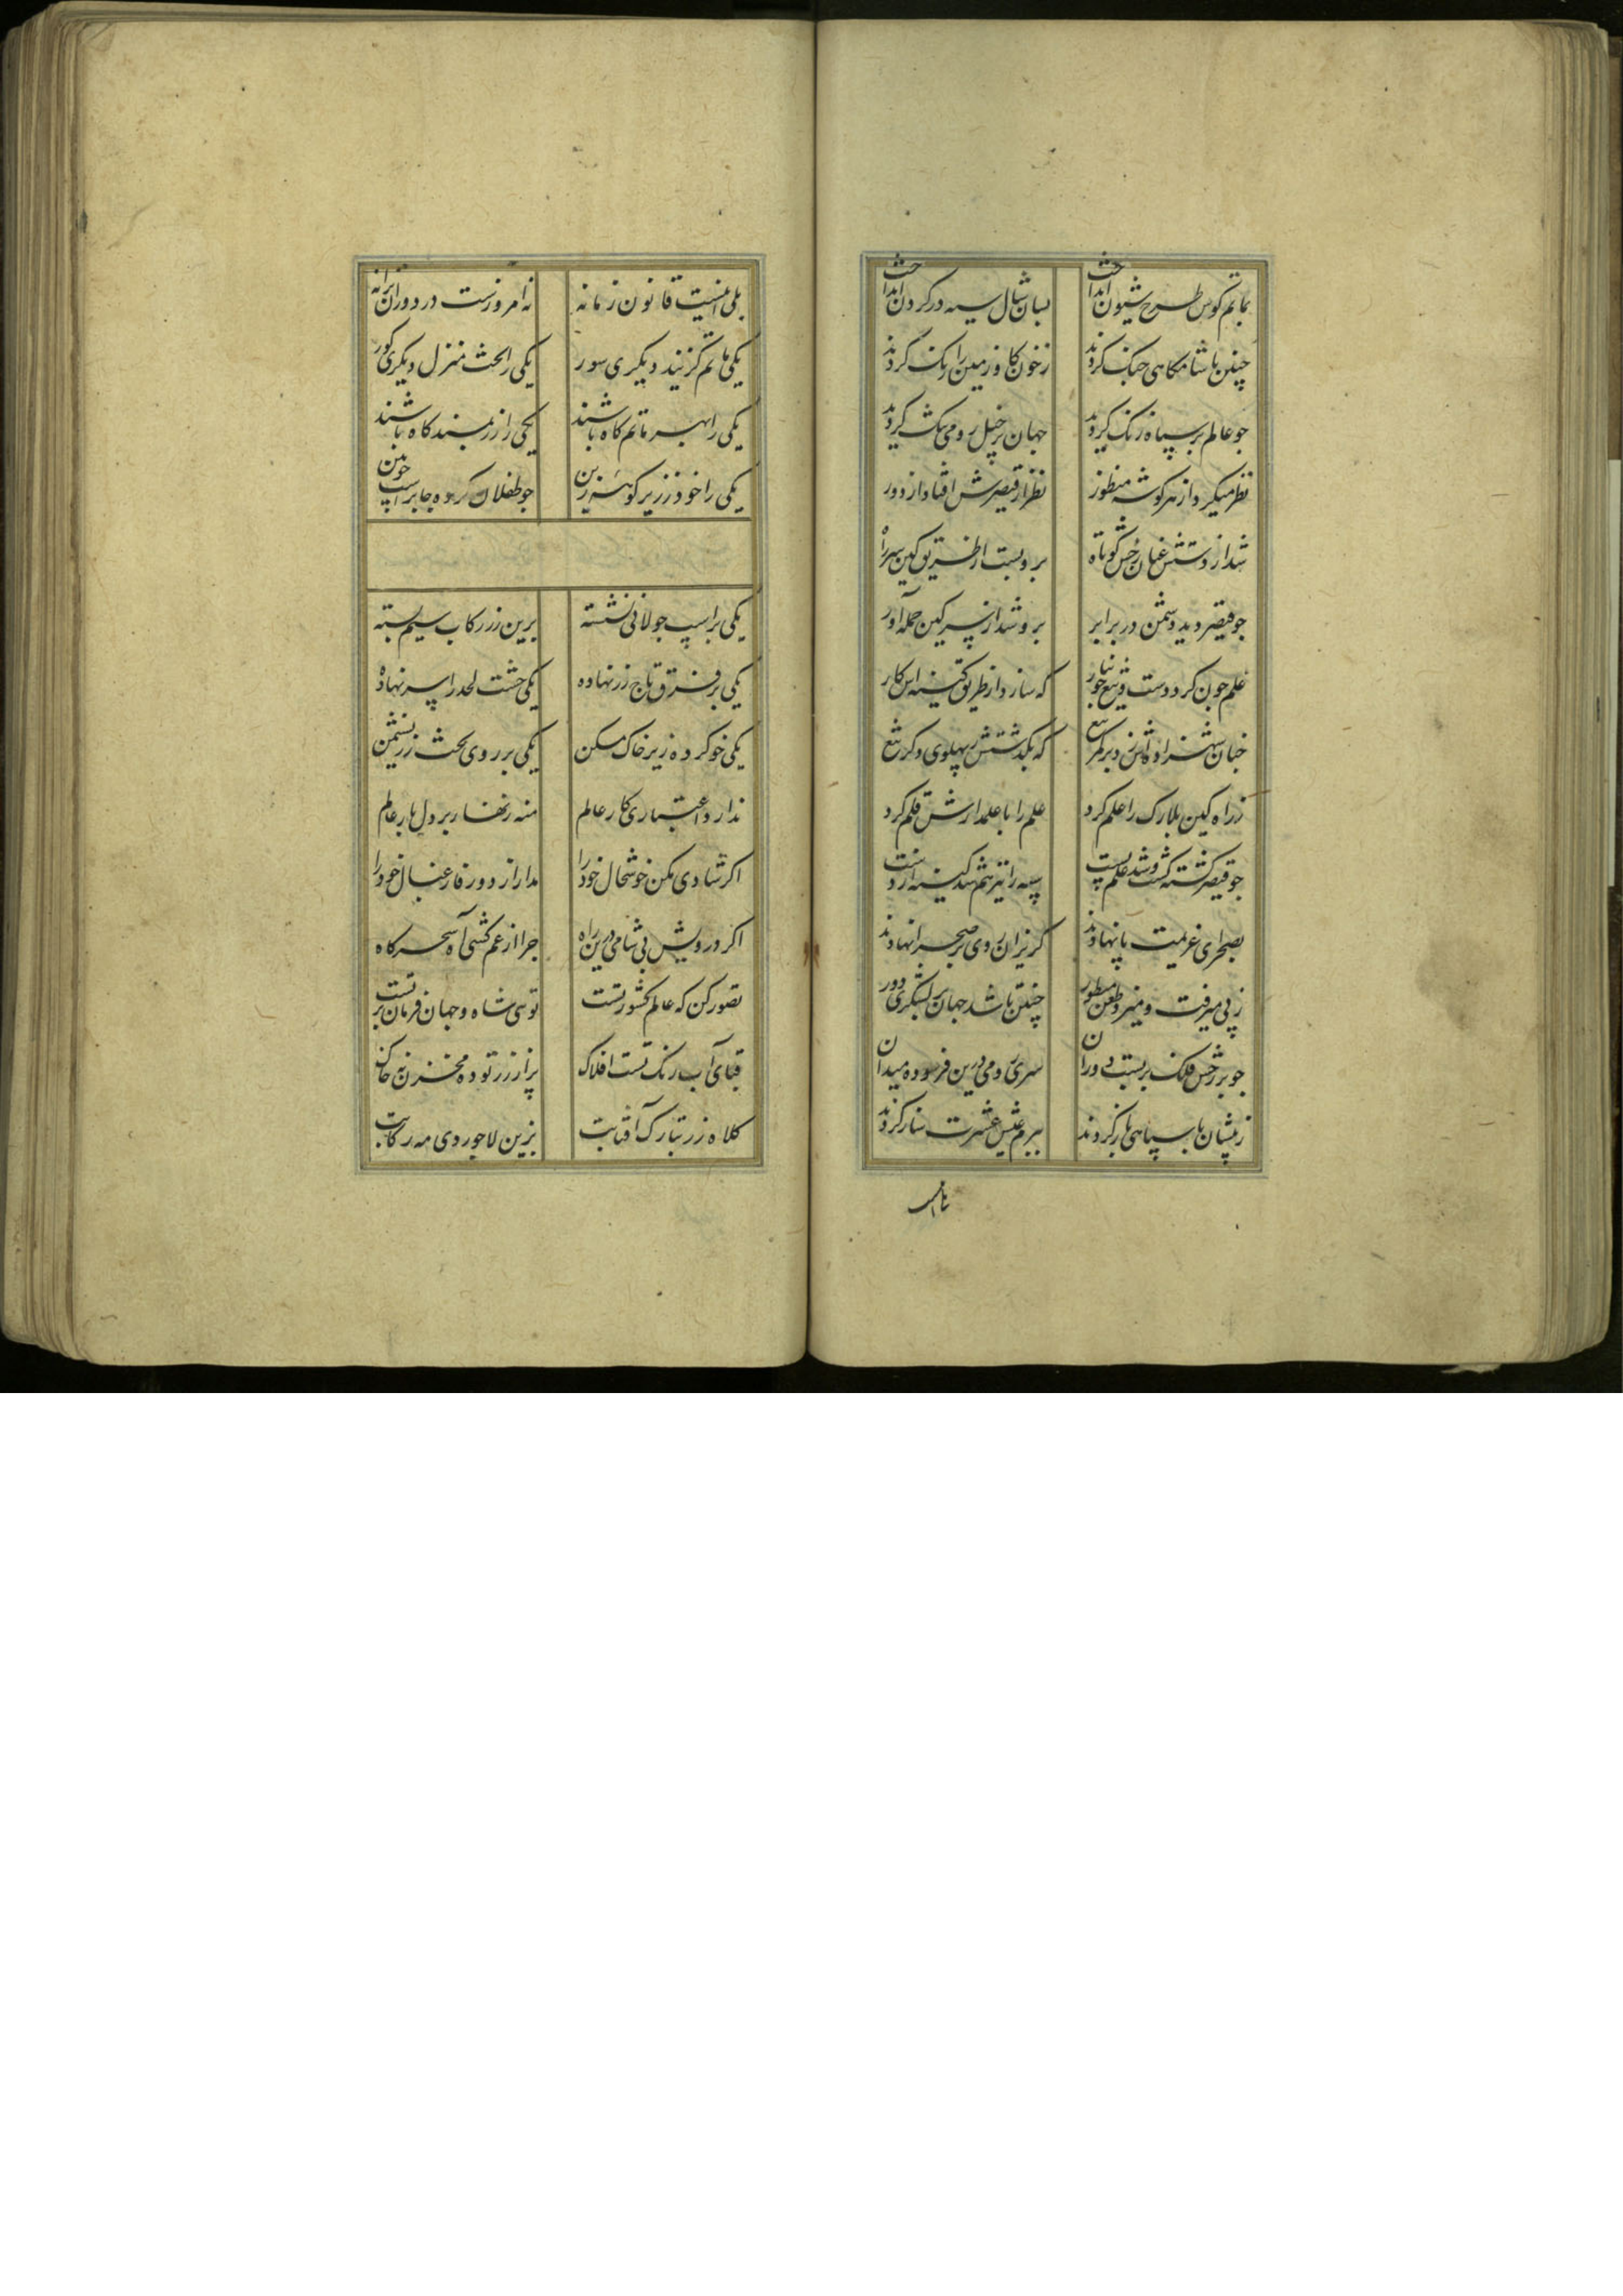 بماتم کوس طرح شیون انداخت بسان شال سیه در کردن انداخت
چنین تا شامکاهی جنک کردند ز خون کاو زمین را رنک کردند
جو عالم بر سپاه زنک کردید جهان بر خیل رومی تنک کردید
نظر میکرد از هر کوشه منظور نظر از قیصرش افتاد از دور
شد از دستش عنان رخش کوتاه برو بست از طریق کین سر راه
جو قیصر دید دشمن در برابر برو شد از سر کین حمله آور
علم جون کرد دست و تیغ که سازد از طریق کینه اش کار
جنان شهزاده اش زد بر کمر تیغ که بکذشتش ز پهلوی دکر تیغ
ز راه کین بلارک را علم کرد علم را با علمدارش قلم کرد
جو قیصر کشته کشت و شد علم پست سپه را نیز هم شد کینه از دست
بصحرای عزیمت پا نهادند کریزان روی بر صحرا نهادند
ز پی میرفت و میزد منظور چنین تا شد جهان بر لشکری دور
جو بر رخش فلک بر بست دوران سر رومی درین فرسوده میدان
ز پیشان با سپاهی باز کردند ببزم عیش عشرت ساز کردند
بلی اینست قانون زمانه نه امروزست در دوران ترانه
یکی ماتم کزیند دیکری سور یکی را تخت منزل دیکری کور
یکی را بستر ماتم کاه باشد یکی را زر مسند کاه باشد
یکی را خود زر بر کوهه زین جو طفلان کرده جا بر اسپ جوبین
یکی بر اسپ جولانی نشسته برین زر رکاب سیم بسته
یکی بر فرق تاج زر نهاده یکی خشت لحد را سر نهاده
یکی خو کرده زیر خاک مسکن یکی بر روی تخت زر نشیمن
ندارد اعتباری کار عالم منه زنهار بر دل بار عالم
اکر شادی مکن خوشحال خود را مدار از دور فارغبال خود را
اکر درویش بی شامی درین راه جرا از غم کشی آه سحرکاه
تصور کن که عالم کشور تست توی شاه و جهان فرمان بر تست
قبای آب رنک تست افلاک پر از زر توده مخزن نه خاک
کلاه زر بتارک آفتابت بزین لاجوردی مه رکابت